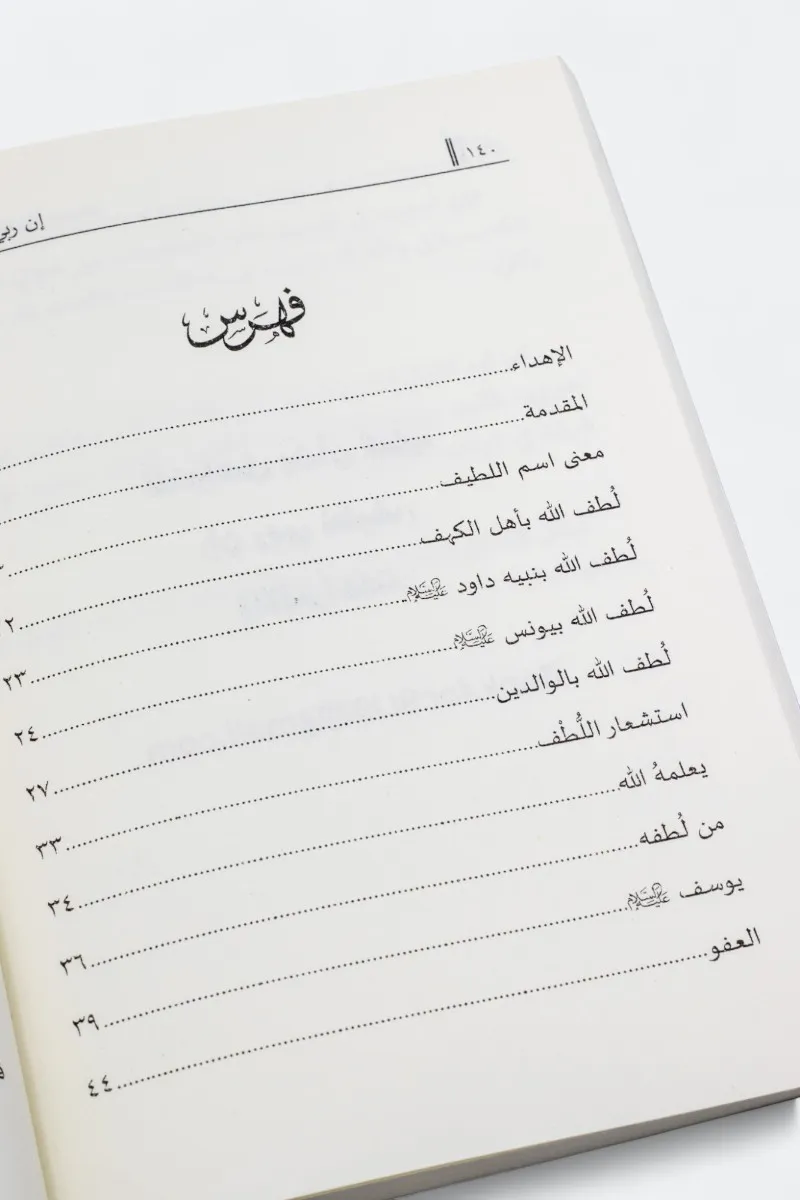 ١٤٠ إن ربي
فهرس
الإهداء
المقدمة
معنى اسم اللطيف
لُطف الله بأهل الكهف
لُطف الله بنبيه داود عليه السلام ٢٣
لُطف الله بيونس عليه السلام ٢٤
لُطف الله بالوالدين ٢٧
استشعار اللُّطْف ٣٣
يعلمهُ الله ٣٤
من لُطفه ٣٦
يوسف عليه السلام ٣٩
العفو ٤٤